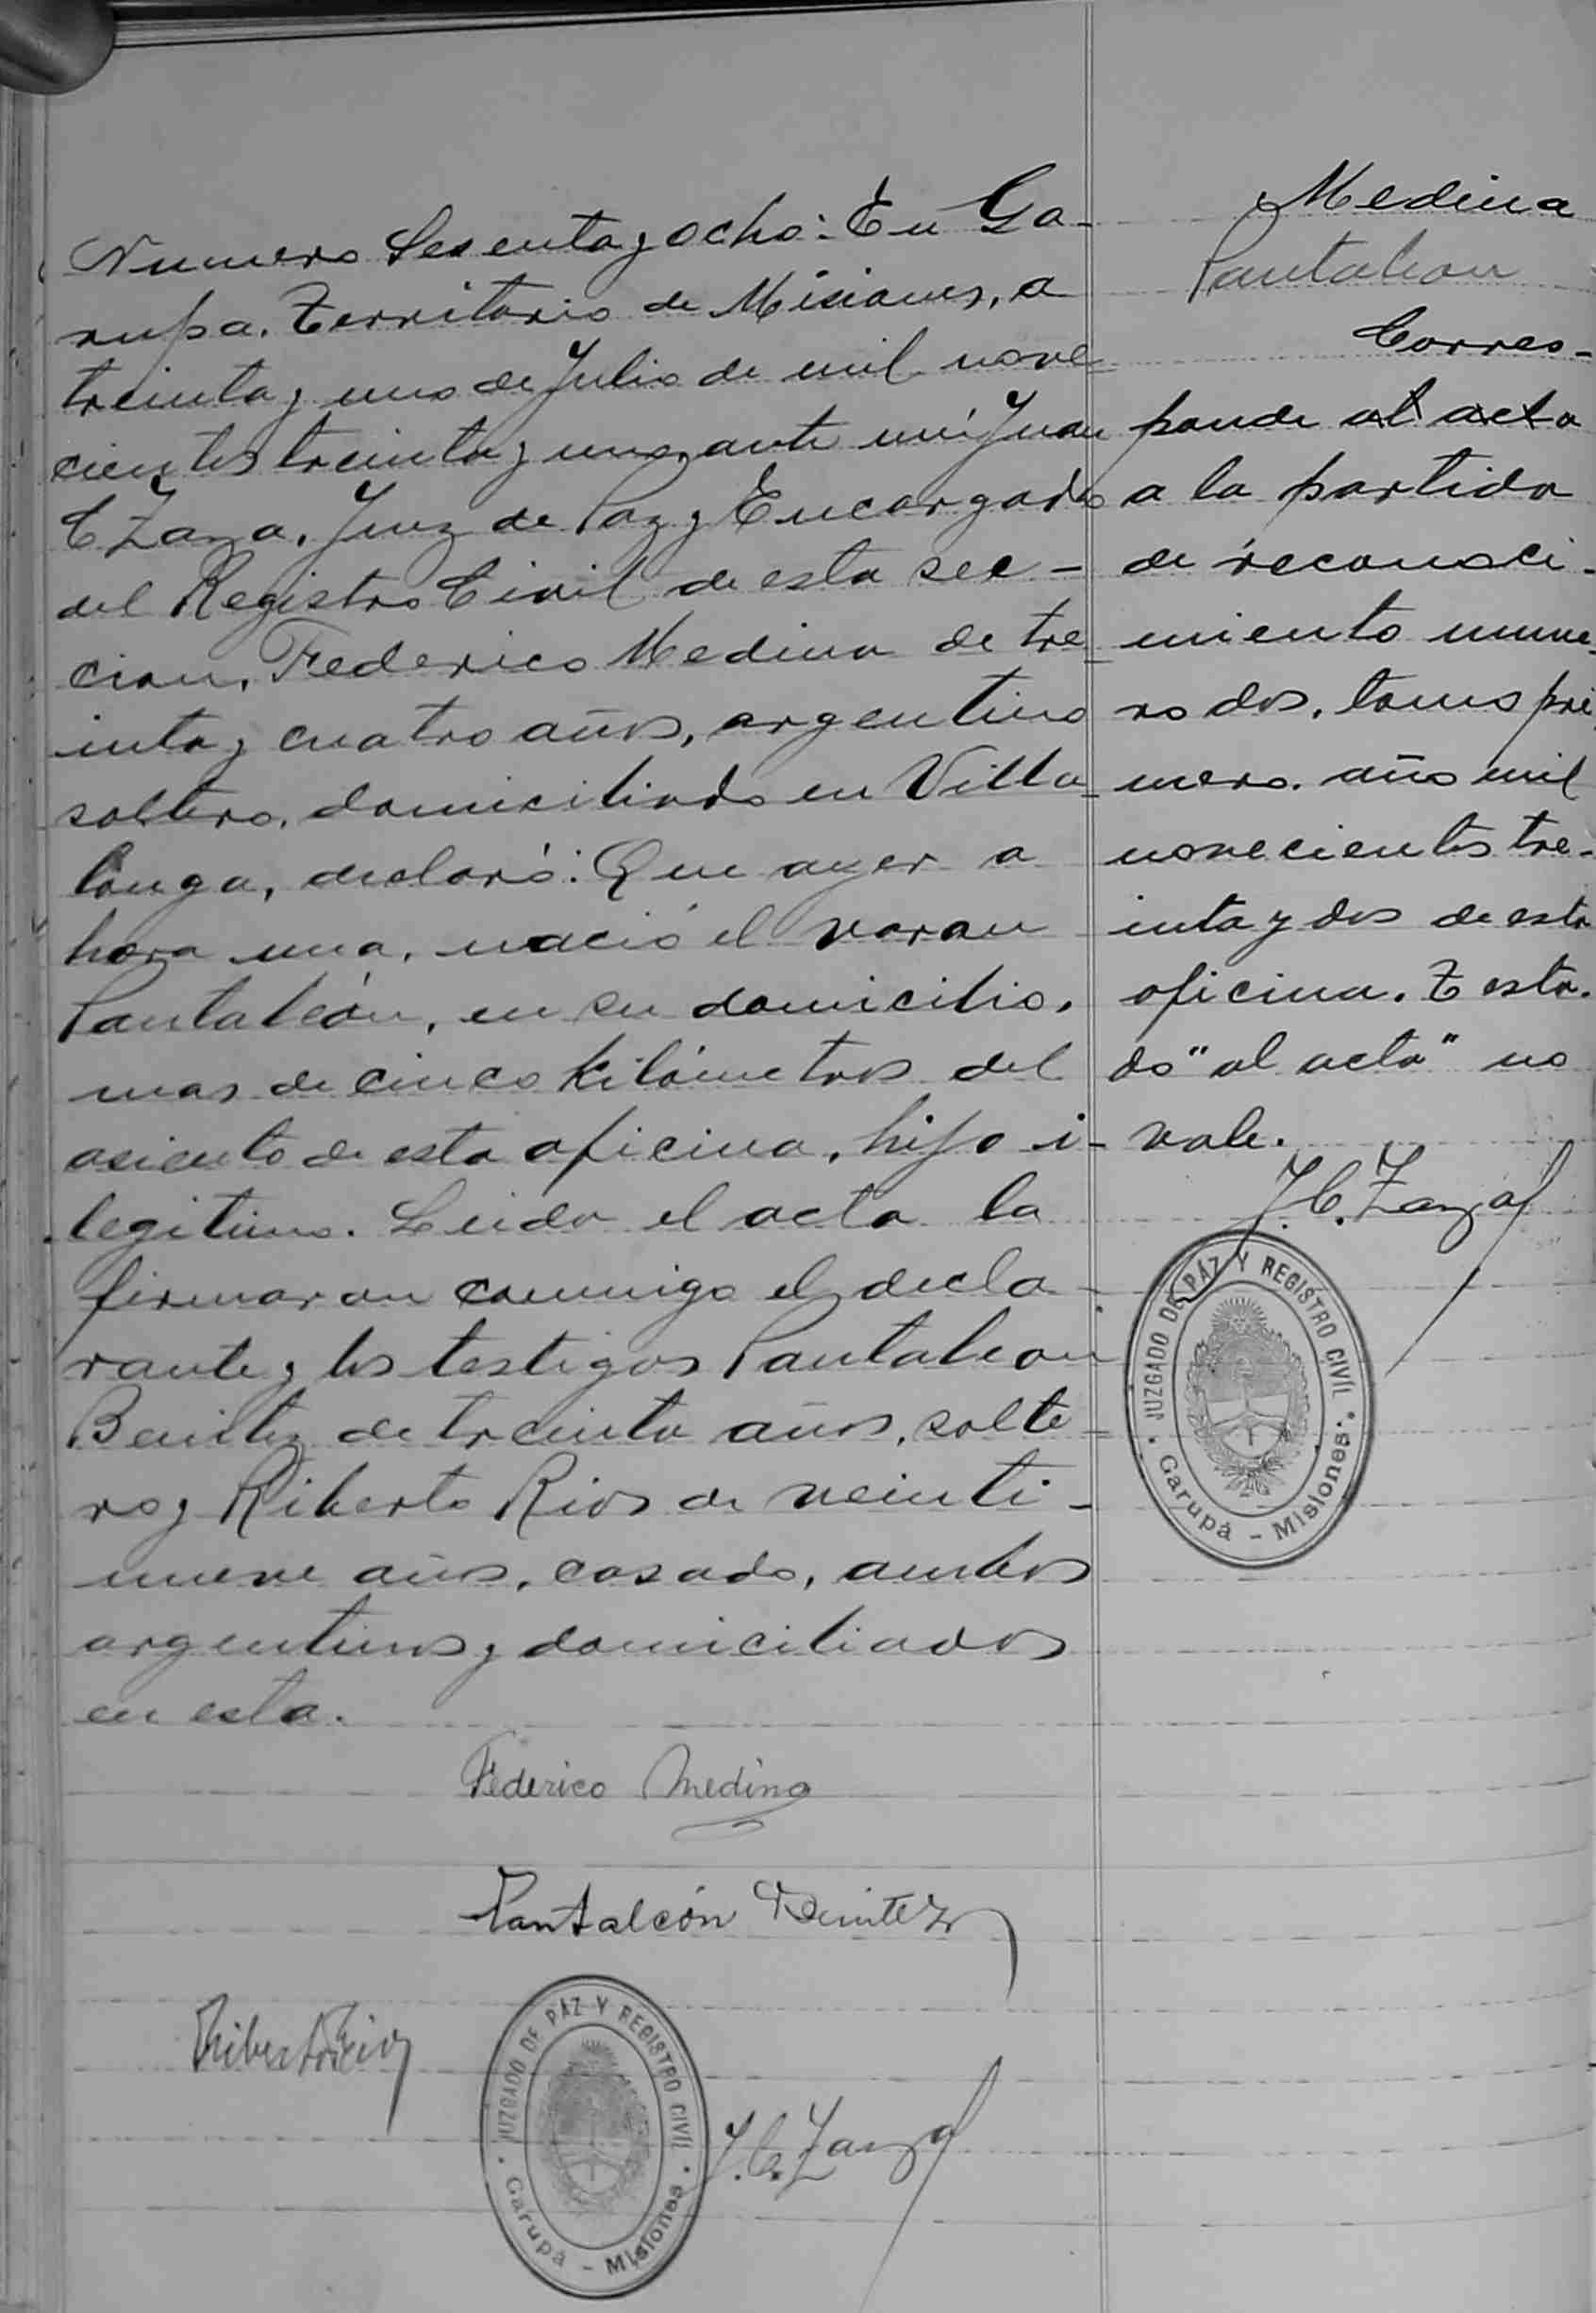 Numero Sesenta y ocho: En Ga-
rupa. Territorio de Misiones, a
treinta y uno de Julio de mil nove
cientos treinta y uno, ante mí Juan
C Zanza, Juez de Paz y Encargado
del Registro Civil de esta sec-
cion, Federico Medina de tre-
inta y cuatro años, argentino
soltero, domiciliado en Villa-
longa, declaró: Que ayer a
hora una, nació el varon
Pantaleón, en su domicilio,
mas de cinco kilómetros del
asiento de esta oficina, hijo i-
legitimo. Leida el acta la
firmaron conmigo el decla-
rante y los testigos Pantaleon
Benitez de treinta años, solte-
ro y Riberto Rios de veinti-
nueve años, casado, ambos
argentinos y domiciliados
en esta.
Federico Medina
Pantaleón Benitez
Riberto Rios
JUZGADO DE PAZ Y REGISTRO CIVIL
Garupá - Misiones
J. C. Zanza
Medina
Pantaleon
Corres-
ponde al acta
a la partida
de reconoci-
miento nume-
ro dos, tomo pri
mero. año mil
novecientos tre-
inta y dos de esta
oficina. Testa-
do "al acta" no
vale.
J. C. Zanza
JUZGADO DE PAZ Y REGISTRO CIVIL
Garupá - Misiones